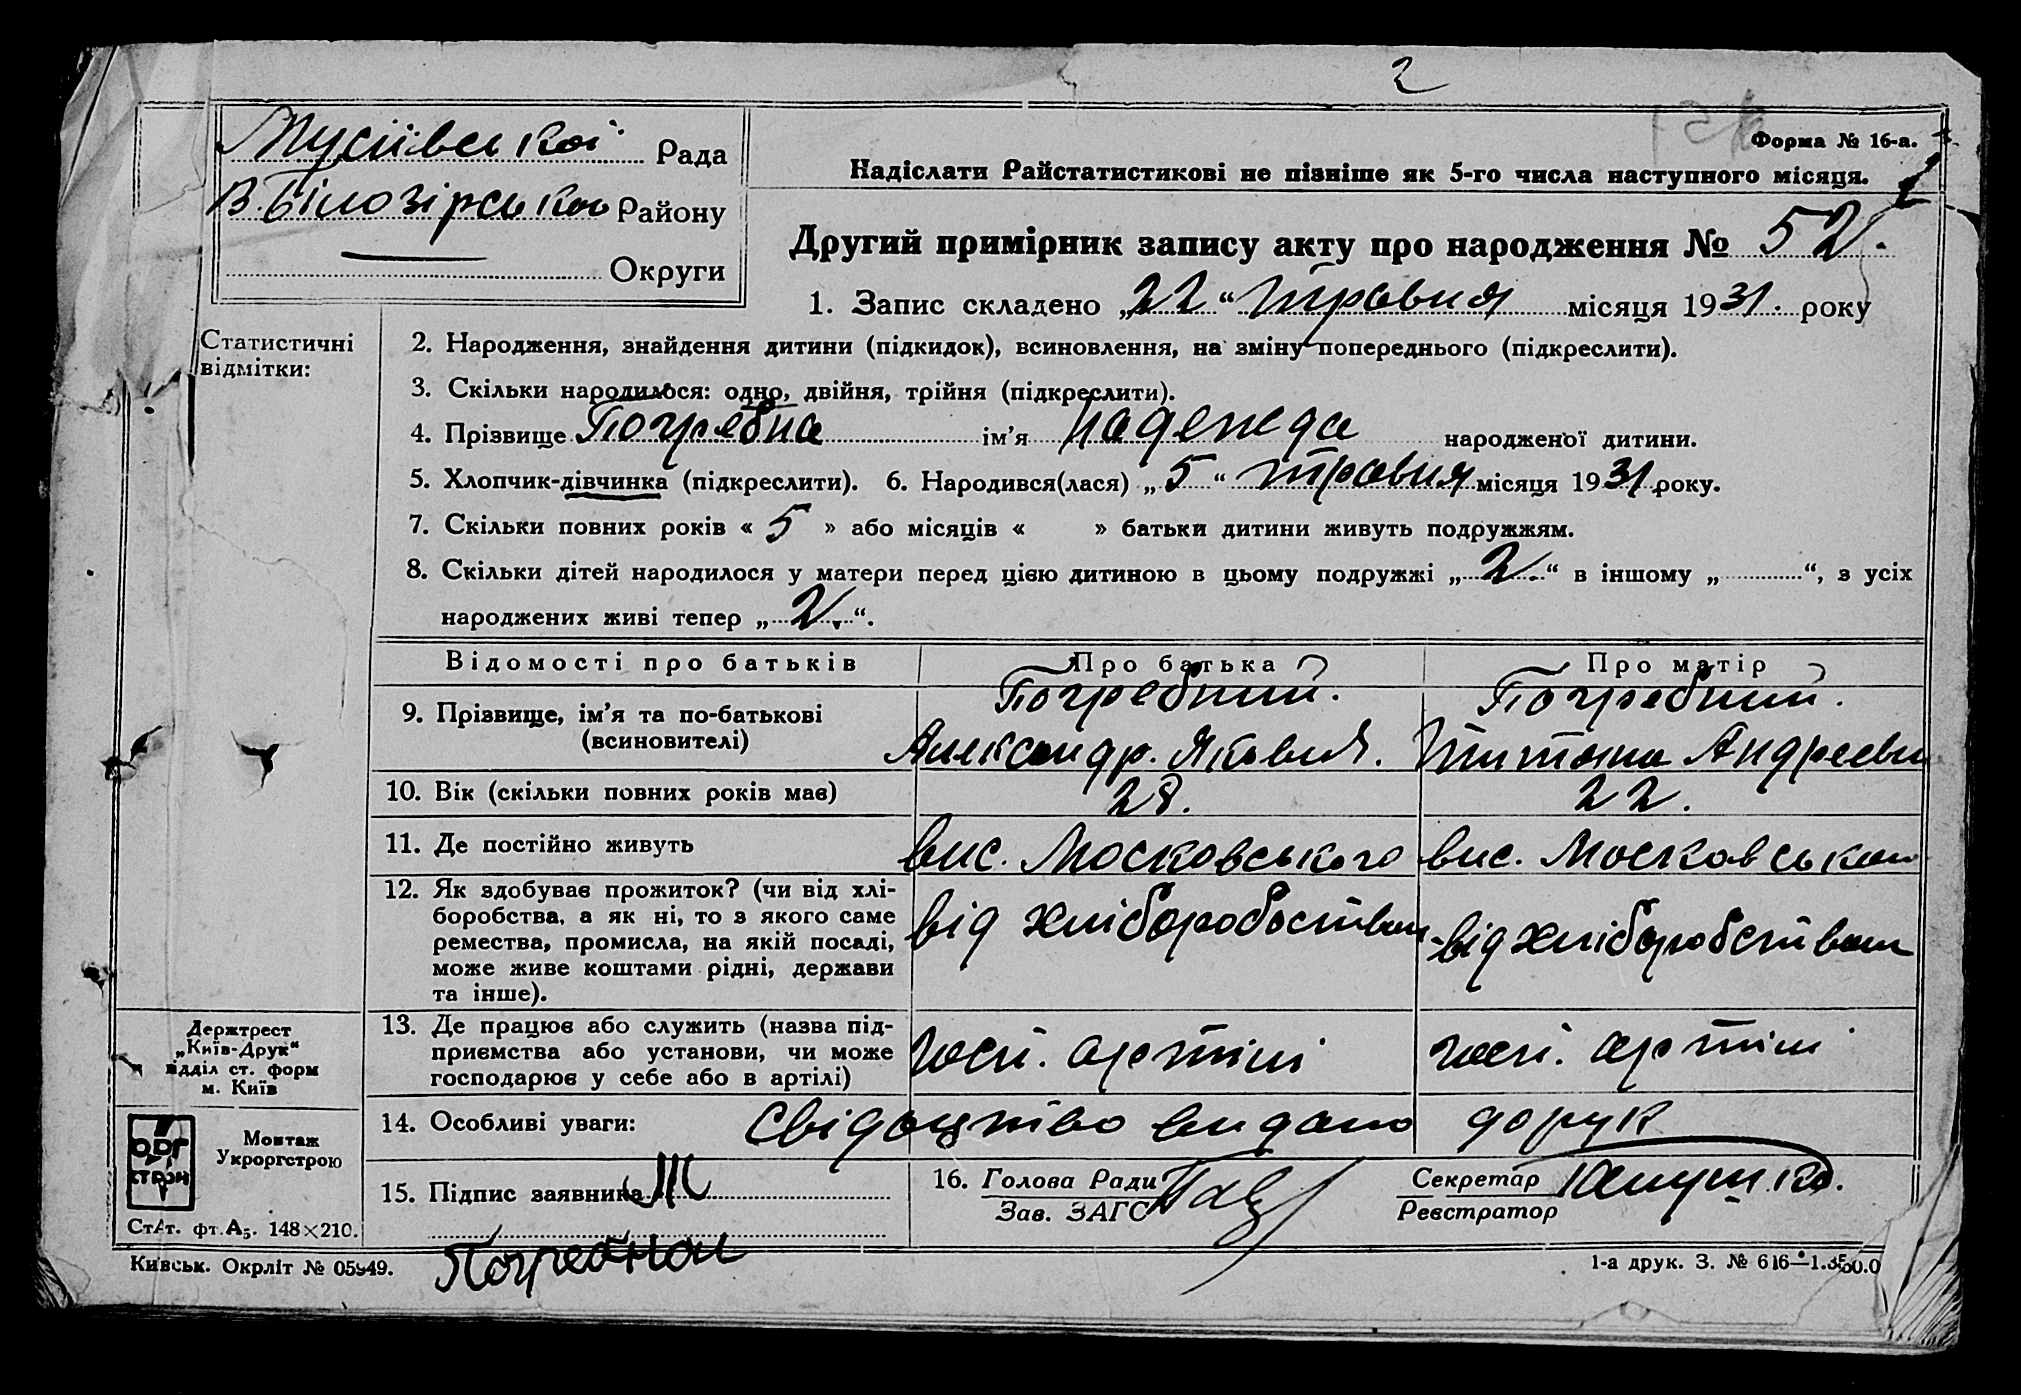 2
Мусіївської Рада
В.Білозірсько Району
Округи
Форма № 16-а.
Надіслати Райстатистикові не пізніше як 5-го числа наступного місяця.
Другий примірник запису акту про народження № 52.
1. Запис складено „22“ травня місяця 1931. року
Статистичні
відмітки:
2. Народження, знайдення дитини (підкидок), всиновлення, на зміну попереднього (підкреслити).
3. Скільки народилося: одно, двійня, трійня (підкреслити).
4. Прізвище Погребна ім’я Надежда народженої дитини.
5. Хлопчик-дівчинка (підкреслити). 6. Народився(лася) „5“ травня місяця 1931 року.
7. Скільки повних років « 5 » або місяців « » батьки дитини живуть подружжям.
8. Скільки дітей народилося у матери перед цією дитиною в цьому подружжі „2.“ в іншому „ “, з усіх
народжених живі тепер „2.“.
Відомості про батьків Про батька Про матір
9. Прізвище, ім’я та по-батькові
(всиновителі)
Погребний. Погребний.
Александр. Яковл. Титяна Андреевн
10. Вік (скільки повних років має) 28. 22.
11. Де постійно живуть вис. Московського вис. Московського
12. Як здобуває прожиток? (чи від хлі-
боробства, а як ні, то з якого саме
ремества, промисла, на якій посаді,
може живе коштами рідні, держави
та інше).
від хліборобоства від хліборобства
13. Де працює або служить (назва під-
приємства або установи, чи може
господарює у себе або в артілі)
госп. артілі госп. артілі
14. Особливі уваги: Свідоцтво видано дорук
15. Підпис заявника
Погребной
16. Голова Ради
Зав. ЗАГС
Секретар
Реєстратор
Держтрест
„Київ-Друк“
відділ ст. форм
м. Київ
ОРГ
СТРОЙ
Монтаж
Укроргстрою
Стат. фт. А₅. 148×210.
Київськ. Окрліт № 05949.
1-а друк. З. № 616—1.